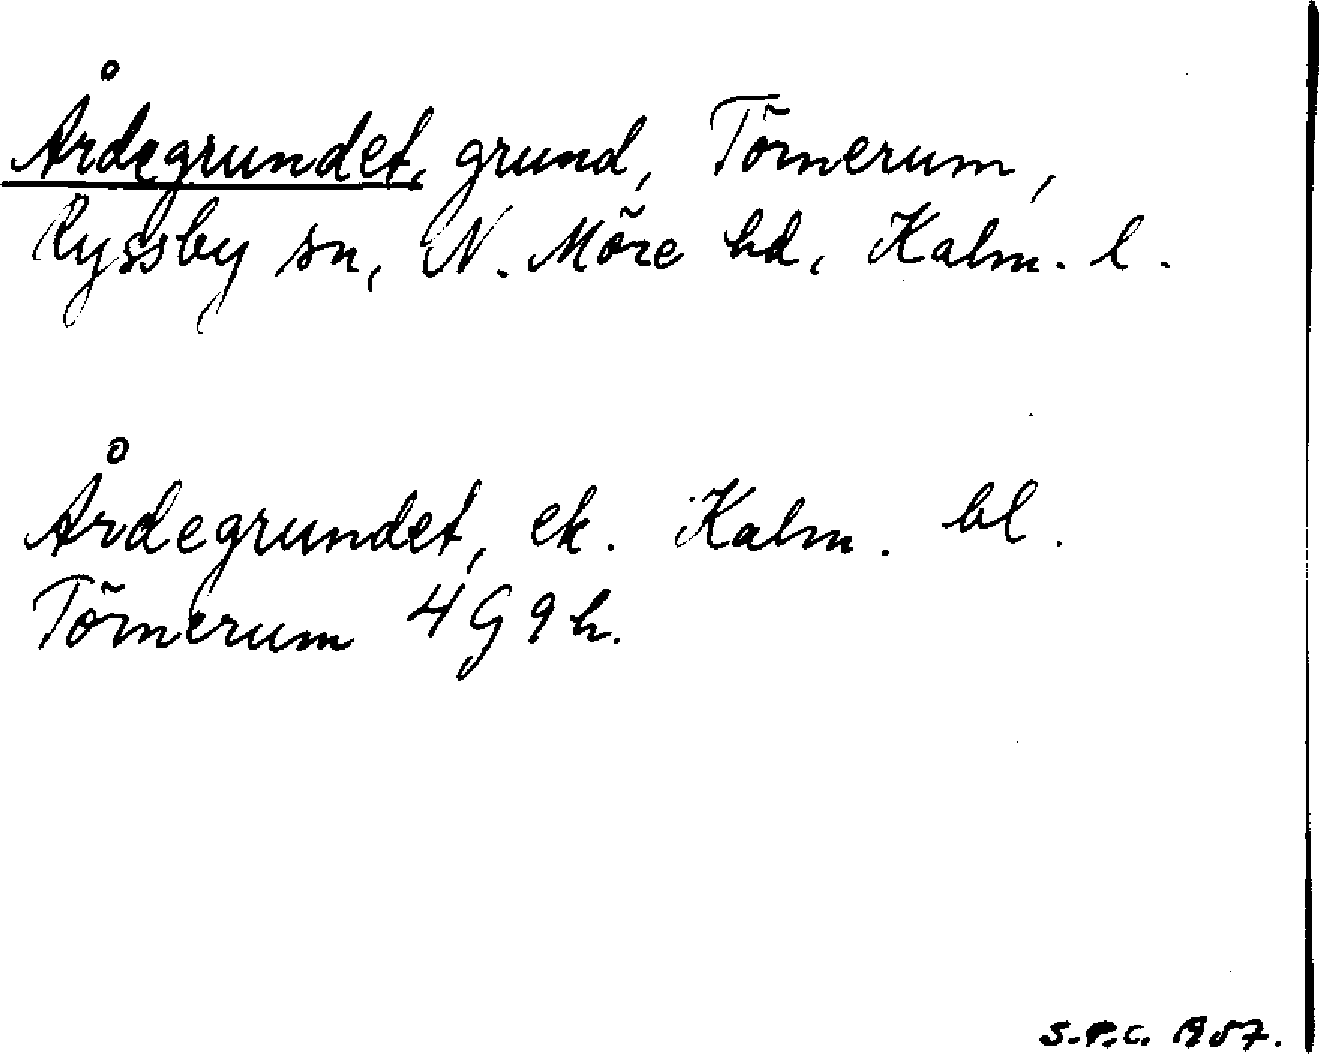 Årdegrundet, grund, Törnerum,
Ryssby sn, N. Möre hd, Kalm. l.
Årdegrundet, ek. Kalm. bl.
Törnerum 4G9h.
S.P.C. 1957.